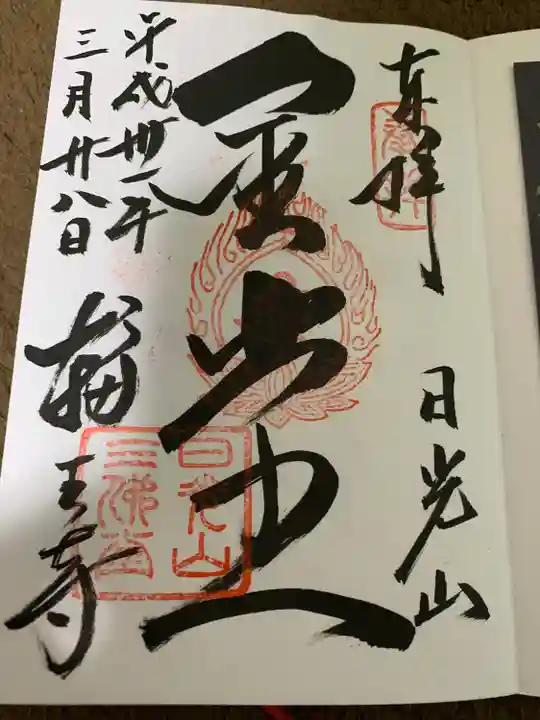 奉拝 日光山
金堂
平成卅一年
三月廿八日
輪王寺
日光山
三佛堂